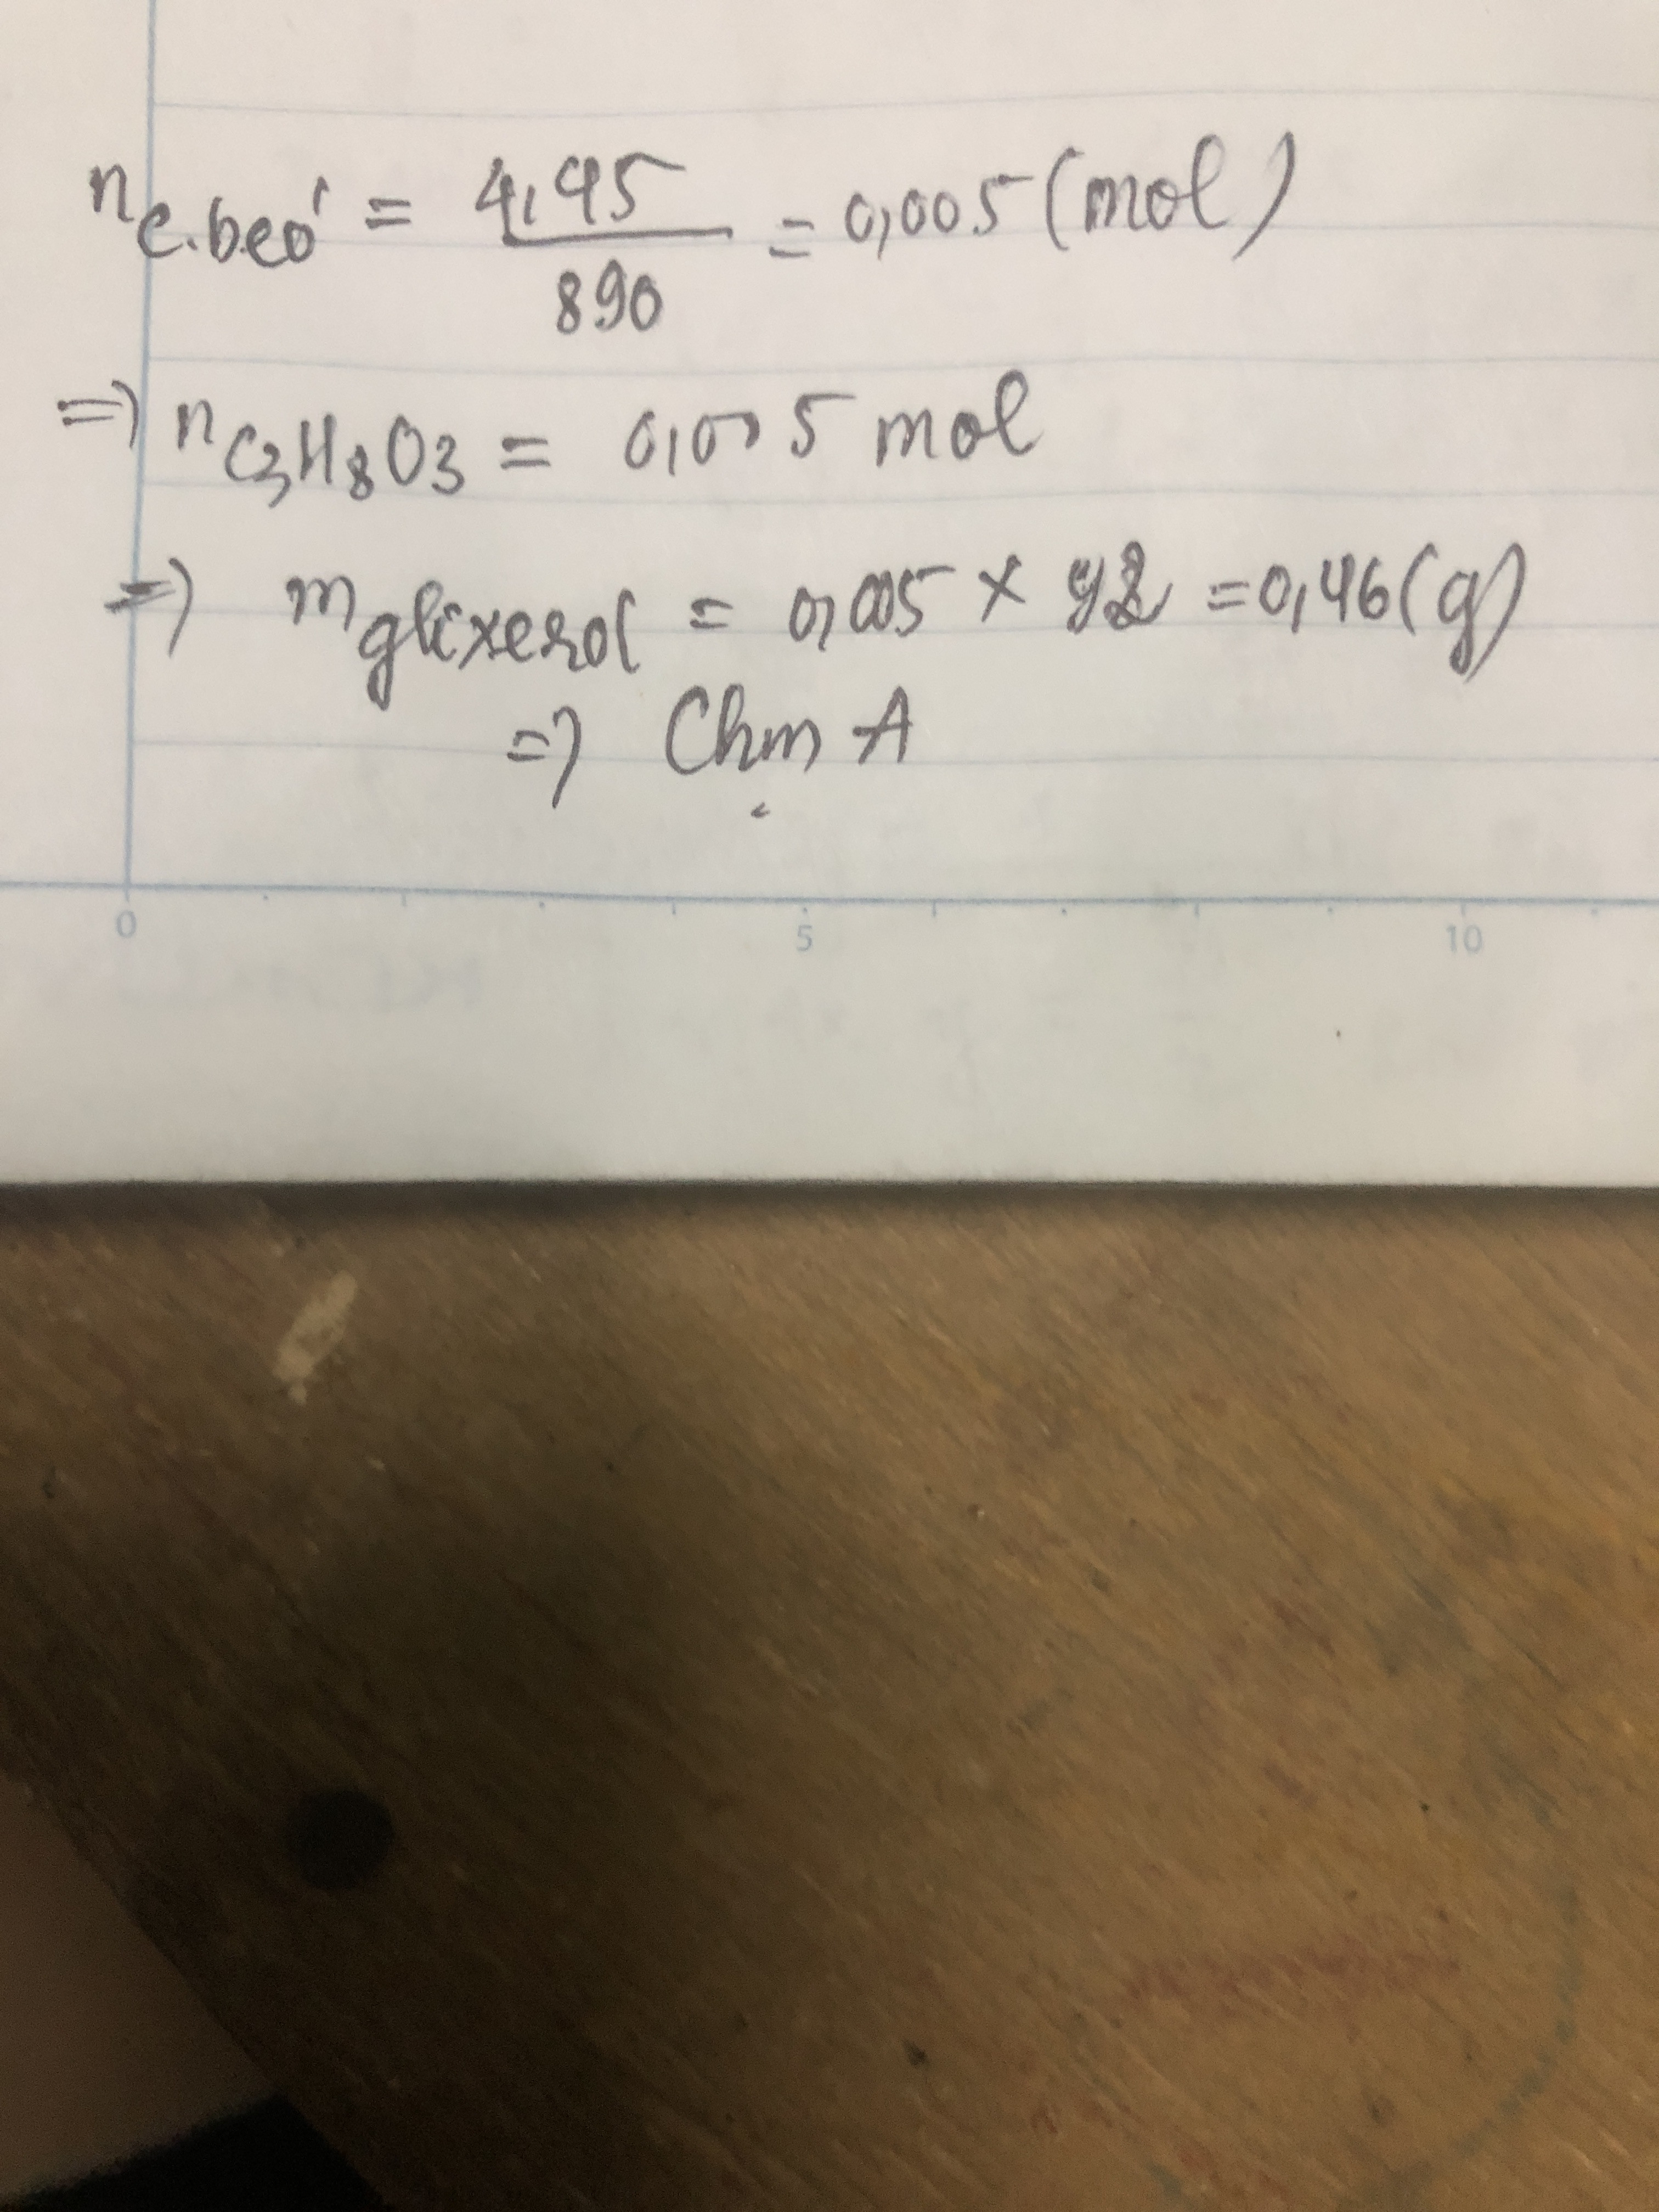 n c.béo = 4,45 / 890 = 0,005 (mol)
=> n C3H8O3 = 0,005 mol
=> m glixerol = 0,005 x 92 = 0,46 (g)
=> Chọn A
0 5 10